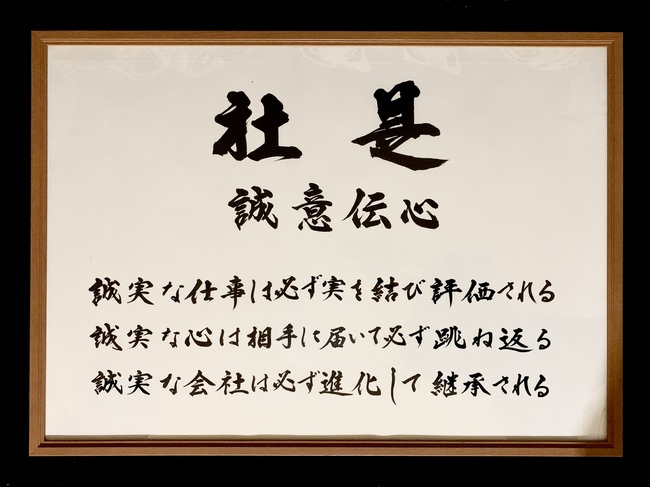 社是
誠意伝心
誠実な仕事は必ず実を結び評価される
誠実な心は相手に届いて必ず跳ね返る
誠実な会社は必ず進化して継承される